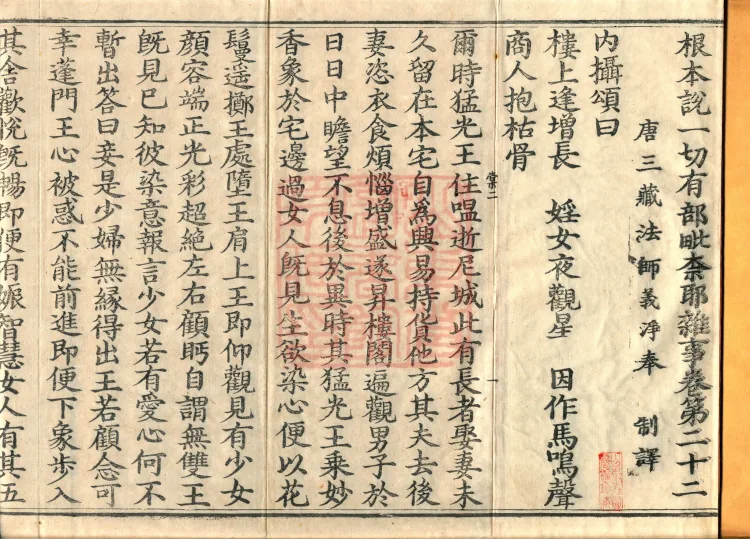 根本說一切有部毗奈耶雜事卷第二十二
唐三藏法師義淨奉 制譯
內攝頌曰
樓上逢增長 婬女夜觀星 因作馬鳴聲
商人抱枯骨
棠二
爾時猛光王住嗢逝尼城此有長者娶妻未
久留在本宅自爲興易持貨他方其夫去後
妻恣衣食煩惱增盛遂昇樓閣遍觀男子於
日日中瞻望不息後於異時其猛光王乘妙
香象於宅邊過女人旣見生欲染心便以花
鬘遥擲王處墮王肩上王即仰觀見有少女
顔容端正光彩超絶左右顧眄自謂無雙王
旣見已知彼染意報言少女若有愛心何不
暫出荅曰妾是少婦無緣得出王若顧念可
幸蓬門王心被惑不能前進即便下象步入
其舍歡悅旣暢即便有娠智慧女人有其五